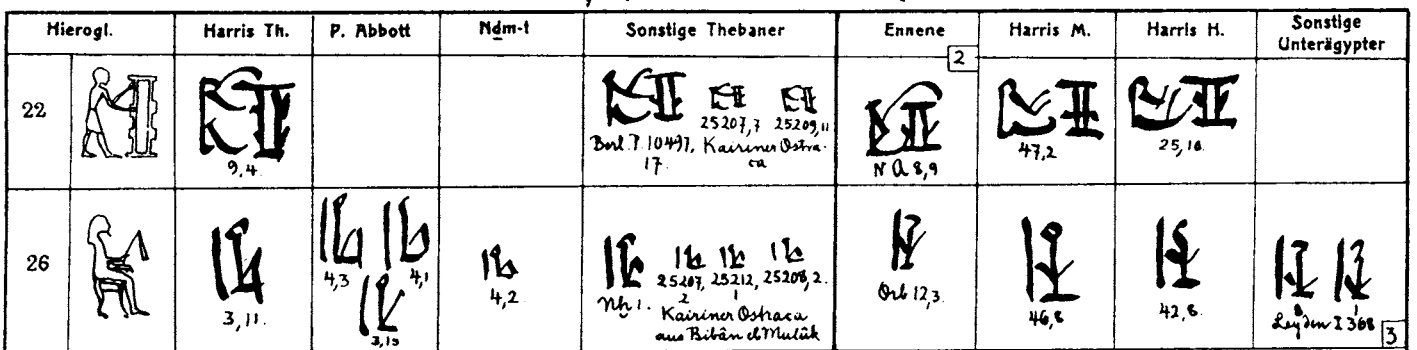 Hierogl. Harris Th. P. Abbott Nḏm-t Sonstige Thebaner Ennene Harris M. Harris H. Sonstige Unterägypter
22
9,4.
Berl. P. 10497, 17.
25207,7 25209,11
Kairiner Ostraca
2
N A 8,9
47,2
25,10.
26
3,11.
4,3 4,1
3,13
4,2.
Nḫ 1.
25207, 2 25212, 1 25208,2.
Kairiner Ostraca
aus Bibân el Mulûk
Orb 12,3.
46,8
42,8.
8 1
Leyden I 368
3